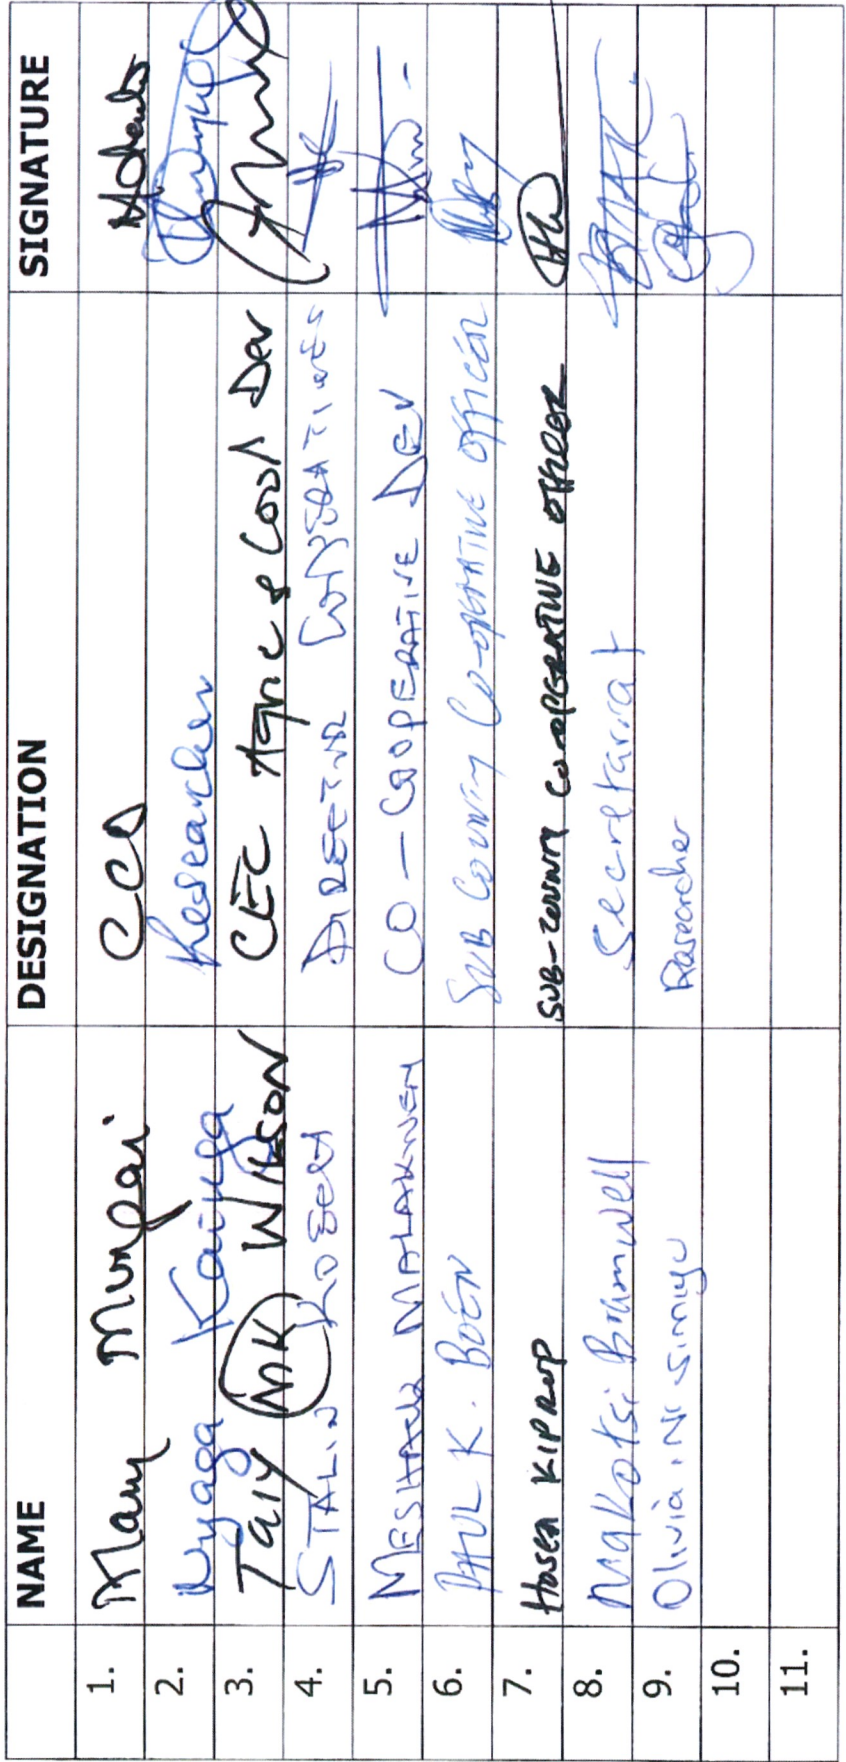 NAME DESIGNATION SIGNATURE
1. Mary Mungai CCO
2. Nyaga Kainga Researcher
3. Taiy MK Wilson CEC Agric & Coop Dev
4. STALIN KOSGEI DIRECTOR COOPERATIVES
5. MESHACK MALAKWEN CO-COOPERATIVE DEV
6. PAUL K. BOEN SUB COUNTY CO-OPERATIVE OFFICER
7. HOSEA KIPROP SUB-COUNTY CO-OPERATIVE OFFICER
8. Makotsi Bramwell Secretariat
9. Olivia .N. Simiyu Researcher
10.
11.